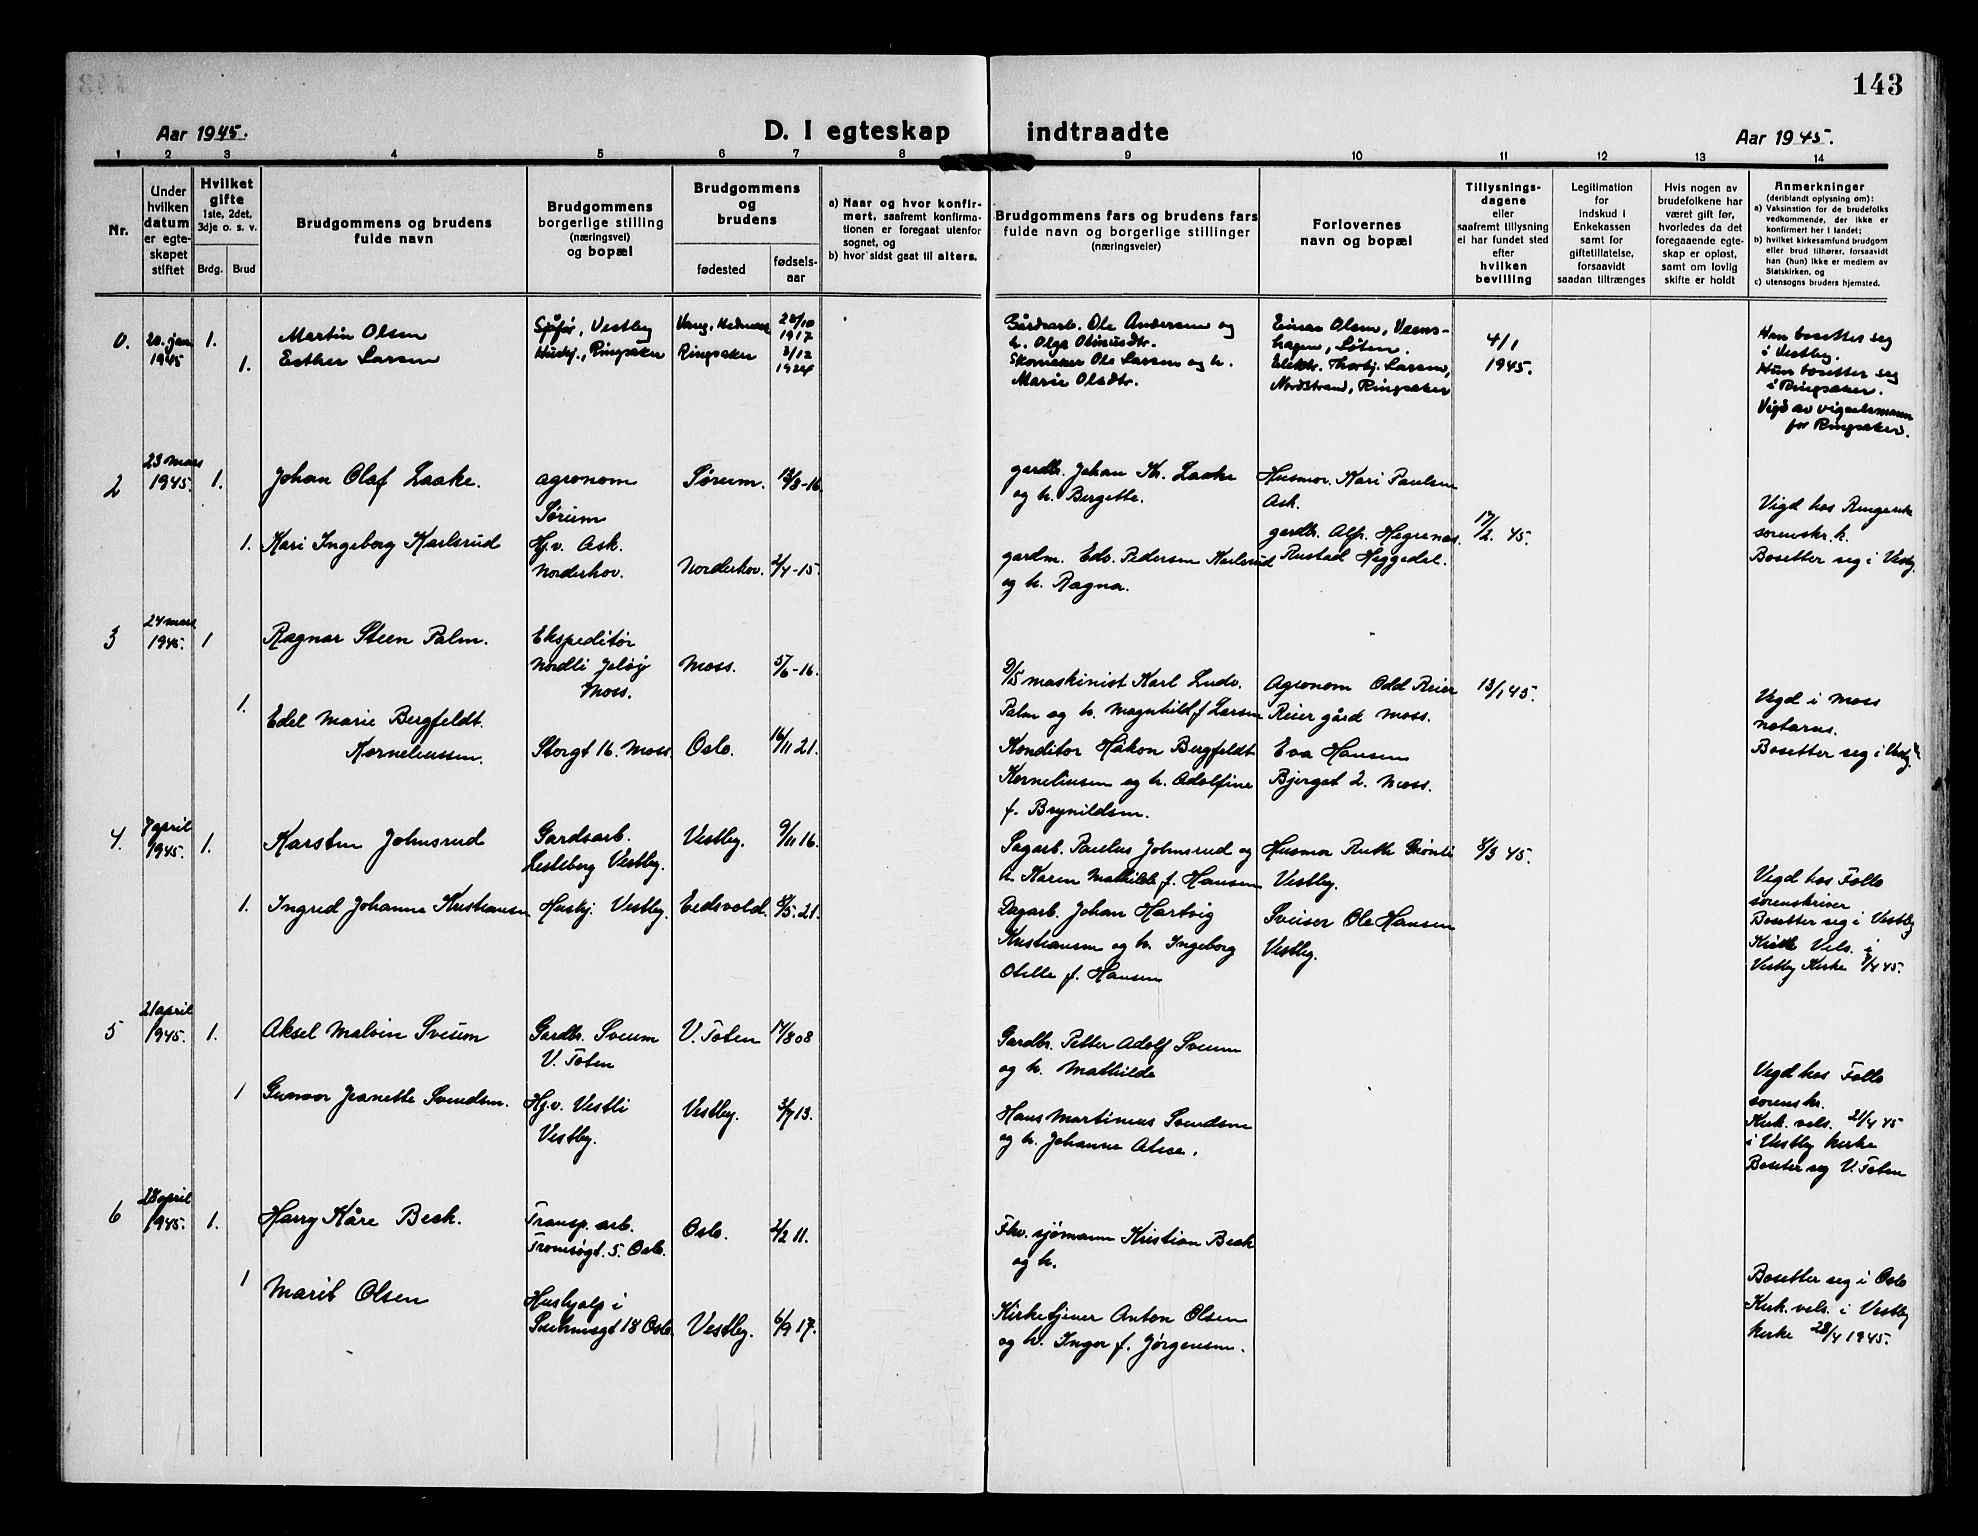 143
Aar 1945.
D. I egteskap indtraadte
Aar 1945.
1 2 3 4 5 6 7 8 9 10 11 12 13 14
Nr.
Under
hvilken
datum
er egte-
skapet
stiftet
Hvilket
gifte
1ste, 2det,
3dje o. s. v.
Brdg. Brud
Brudgommens og brudens
fulde navn
Brudgommens
borgerlige stilling
(næringsvei)
og bopæl
Brudgommens
og
brudens
fødested
fødsels-
aar
a) Naar og hvor konfir-
mert, saafremt konfirma-
tionen er foregaat utenfor
sognet, og
b) hvor sidst gaat til alters.
Brudgommens fars og brudens fars
fulde navn og borgerlige stillinger
(næringsveier)
Forlovernes
navn og bopæl
Tillysnings-
dagene
eller
saafremt tillysning
ei har fundet sted
efter
hvilken
bevilling
Legitimation
for
indskud i
Enkekassen
samt for
giftetillatelse,
forsaavidt
saadan tiltrænges
Hvis nogen av
brudefolkene har
været gift før,
hvorledes da det
foregaaende egte-
skap er opløst,
samt om lovlig
skifte er holdt
Anmerkninger
(deriblandt oplysning om):
a) Vaksinstion for de brudefolks
vedkommende, der ikke er
konfirmert her i landet;
b) hvilket kirkesamfund brudgom
eller brud tilhører, forsaavidt
han (hun) ikke er medlem av
Statskirken, og
c) utensogns bruders hjemsted.
0. 20. jan 1945 1. Martin Olsen
Sjåfør, Vestby
Vang, Hedmark
28/10
1917
1. Esther Larsen
Hushj., Ringsaker
Ringsaker
3/12
1924
Gårdsarb. Ole Andersen og
h. Olga Otinusdtr.
Skomaker Ole Larsen og h.
Marie Olsdtr.
Einar Olsen, Vams-
hagen, Løten.
Elektr. Thorbj. Larsen,
Nordstrand, Ringsaker
4/1
1945.
Han bosetter seg
i Vestby.
Hun bosetter seg
i Ringsaker.
Vigd av vigselsmann
for Ringsaker.
2 23 mars
1945. 1. Johan Olaf Laake.
agronom
Sørum
Sørum. 12/8-16.
1. Kari Ingeborg Karlsrud
Hj.v. Ask.
Norderhov.
Norderhov. 2/4-15.
gardbr. Johan Kr. Laake
og h. Bergette.
gardm. Edv. Pedersen Karlsrud
og h. Ragna.
Husmor. Kari Paulsen
Ask.
gardbr. Alf. Hegrenes.
Rustad Heggedal.
17/2 45.
Vigd hos Ringerik
sorenskr.k.
Bosetter seg i Vestby.
3 24 mars
1945. 1 Ragnar Steen Palm.
Ekspeditør
Nordli Jeløy
Moss.
Moss. 5/6-16.
1. Edel Marie Bergfeldt
Korneliussen.
Storgt 16. Moss.
Oslo. 16/11 21.
D/S maskinist Karl Ludv.
Palm og h. Magnhild f. Larsen
Konditor Håkon Bergfeldt
Korneliusen og h. Adolfine
f. Brynildsen.
Agronom Odd Reier
Reier gård Moss.
Eva Hansen
Bjerget 2. Moss.
13/1 45.
Vigd i Moss
notarus.
Bosetter seg i Vestby.
4. 7 april
1945. 1. Karsten Johnsrud
Gardsarb.
Liseberg Vestby.
Vestby. 9/11 16.
1. Ingrid Johanne Kristiansen
Hushj. Vestby.
Eidsvold. 8/5.21.
Sagarb. Paulus Johnsrud og
h. Karen Mathilde f. Hansen
Dagarb. Johan Hartvig
Kristiansen og h. Ingeborg
Otelle f. Hansen
Husmor Ruth Grønli
Vestby.
Sveiser Ole Hansen
Vestby.
8/3 45.
Vigd hos Follo
sorenskriver
Bosetter seg i Vestby
Kirk Vels. i
Vestby Kirke 7/4 45.
5 21 april
1945. 1. Aksel Malvin Sveum
Gardbr. Sveum
V. Toten
V. Toten 14/8 08
1 Gunvor Jeanette Svendsen.
Hj.v. Vestli
Vestby.
Vestby. 3/7 13.
Gardbr. Petter Adolf Sveum
og h. Mathilde
Hans Martinius Svendsen
og h. Johanne Alise.
Vigd hos Follo
sorenskr.
Kirk. vels. 21/4 45
i Vestby kirke
Bosetter seg V. Toten
6 28 april
1945. 1. Harry Kåre Beck.
Transp. arb.
Tromsøgt. 5. Oslo.
Oslo. 2/2 11.
1 Marit Olsen
Hushjalp i
18 Oslo.
Vestby. 6/9 17.
Fhv. sjømann Kristian Beck
og h.
Kirketjener Anton Olsen
og h. Inger f. Jørgensen.
Bosetter seg i Oslo
Kirk. vels. i Vestby
kirke 28/4 1945.